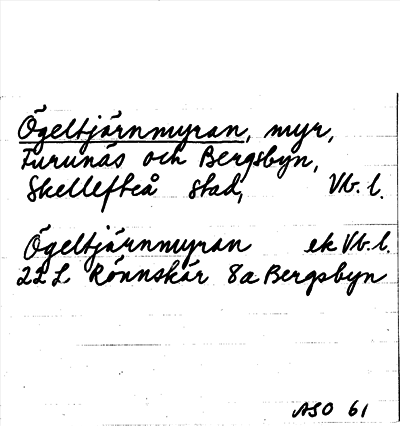 Ögeltjärnmyran, myr,
Furunäs och Bergsbyn,
Skellefteå stad, Vb. l.
Ögeltjärnmyran ek Vb. l.
22 L Rönnskär 8a Bergsbyn
ASO 61